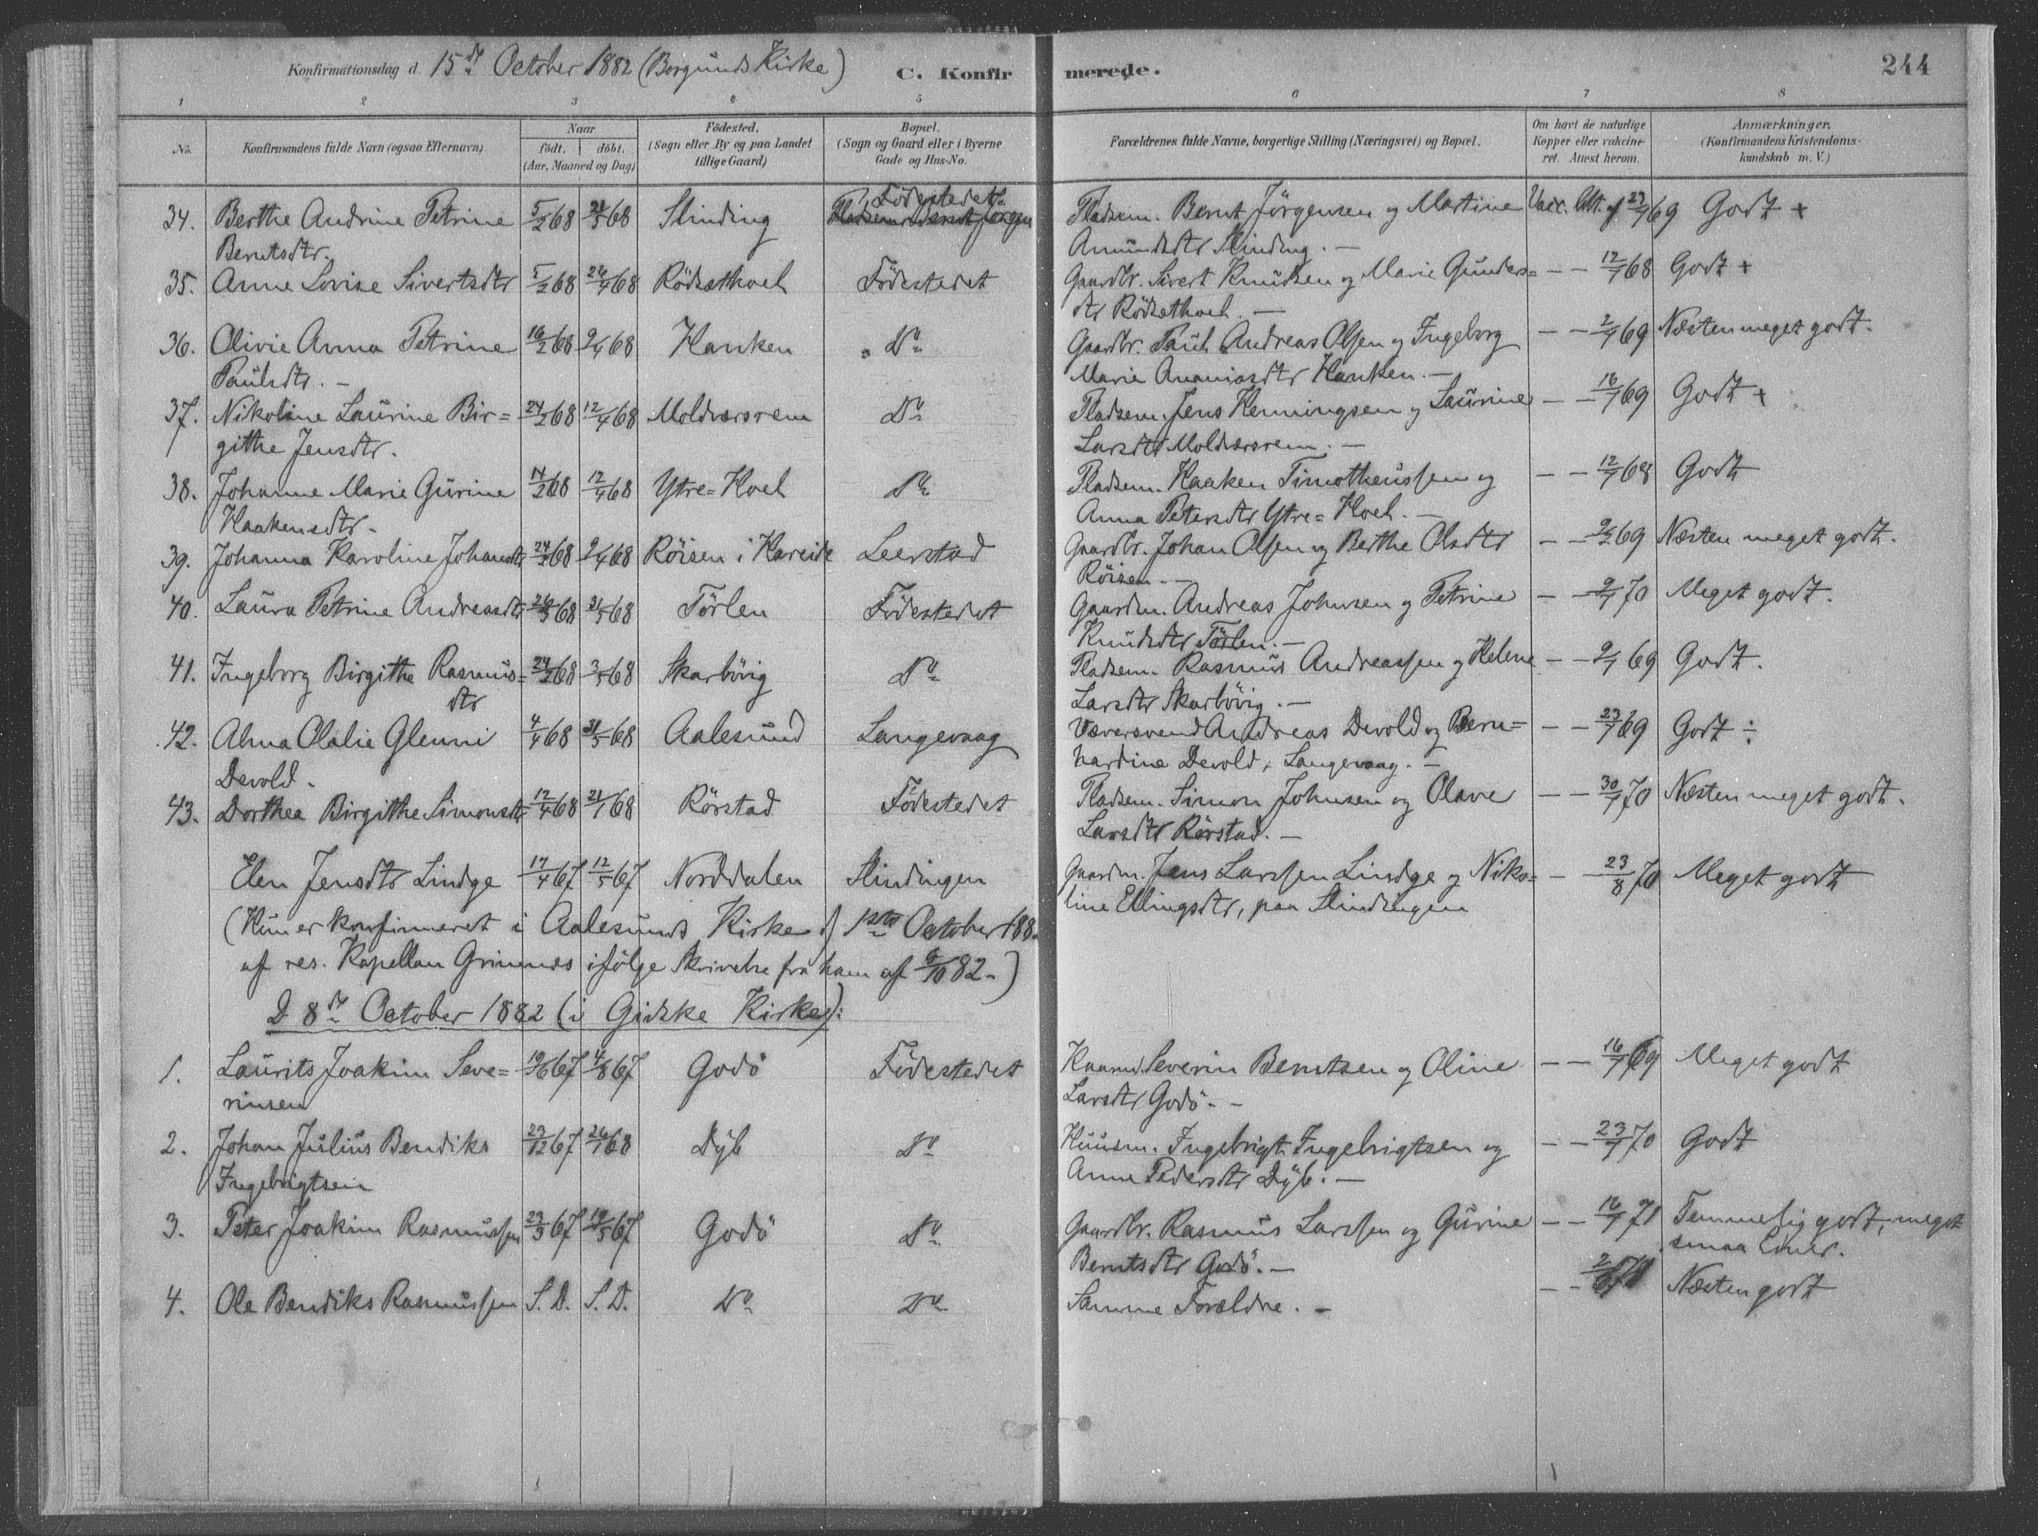 Konfirmationsdag d. 15de October 1882 (Borgunds Kirke) C. Konfirmerede. 244
1 2 3 4 5 6 7 8
No. Konfirmandens fulde Navn (ogsaa Efternavn) Naar født. døbt. (Aar, Maaned og Dag) Födested. (Sogn eller By og paa Landet tillige Gaard) Bopæl. (Sogn og Gaard eller i Byerne Gade og Hus-No. Forældrenes fulde Navne, borgerlige Stilling (Næringsvei) og Bopæl. Om havt de naturlige Kopper eller vakcineret. Attest herom. Anmærkninger. (Konfirmandens Kristendomskundskab m. V.)
34. Berthe Andrine Petrine 5/2 68 68 Slinding Födestedet Pladsem. Bernt Jörgensen og Martine Vacc. Att. af 23/7 69 Godt +
Berntsdtr. Amundsdtr Slinding. —
35. Anne Lovise Sivertsdtr 5/2 68 26/4 68 Rödsethoel Födestedet Gaardbr. Sivert Knudsen og Marie Gunders= — — 12/7 68 Godt +
dtr Rödsethoel. —
36. Olivie Anna Petrine 16/2 68 2/4 68 Hanken Do Gaardbr. Paul Andreas Olsen og Ingeborg — — 2/7 69 Næsten meget godt.
Paulsdtr. — Marie Ananiasdtr Hanken. —
37. Nikoline Laurine Bir= 24/2 68 12/4 68 Moldværsrem Do Pladsem. Jens Henningsen og Laurine — — 16/7 69 Godt +
githe Jensdtr. Larsdtr Moldværsrem. —
38. Johanne Marie Gurine 14/2 68 12/4 68 Ytre=Hoel Do Pladsem. Haaken Timotheussen og — — 12/7 68 Godt
Haakensdtr. Anna Petersdtr Ytre=Hoel. —
39. Johanna Karoline Johansdtr 68 2/4 68 Röisen i Hareide Leerstad Gaardbr. Johan Olsen og Berthe Olsdtr — — 69 Næsten meget godt.
Röisen. —
40. Laura Petrine Andreasdtr 26/3 68 31/5 68 Törlen Födestedet Gaardm. Andreas Johnsen og Petrine — — 9/7 70 Meget godt.
Knudsdtr Törlen. —
41. Ingeborg Birgithe Rasmus= 68 3/5 68 Skarbövig Do Pladsem. Rasmus Andreassen og Helene — — 2/7 69 Godt.
dtr Larsdtr Skarbövig. —
42. Alma Olalie Glenni 4/4 68 31/5 68 Aalesund Langevaag Væversvend Andreas Devold og Bern= — — 23/7 69 Godt ÷
Devold. hardine Devold, Langevaag. —
43. Dorthea Birgithe Simonsdtr 12/4 68 68 Rörstad Födestedet Pladsem. Simon Johnsen og Olave — — 30/7 70 Næsten meget godt.
Larsdtr Rörstad. —
Elen Jensdtr Lindge 17/4 67 12/5 67 Norddalen Slindingen Gaardm. Jens Larssen Lindge og Niko= — — 23/8 70 Meget godt
line Ellingsdtr, paa Slindingen
(Hun er konfirmeret i Aalesunds Kirke d 1ste October 188
af res. Kapellan Grimnes ifölge Skrivelse fra ham af 6/10 82.)
D 8de October 1882 (i Gidske Kirke):
1. Laurits Joakim Seve= 19/6 67 4/8 67 Godö Födestedet Severin Berntsen og Oline — — 16/7 69 Meget godt
rinsen Larsdtr Godö. —
2. Johan Julius Bendiks 23/12 67 26/1 68 Dyb Do Huusm. Ingebrigt Ingebrigtsen og — — 23/7 70 Godt
Ingebrigtsen Anne Pedersdtr Dyb. —
3. Peter Joakim Rasmussen 23/3 67 19/5 67 Godö Do Gaardbr. Rasmus Larssen og Gurine — — 16/7 71 Temmelig godt, meget
Berntsdtr Godö. — smaa Evner.
4. Ole Bendiks Rasmussen S. D. S. D. Do Do Samme Forældre. — — — 71 Næsten godt